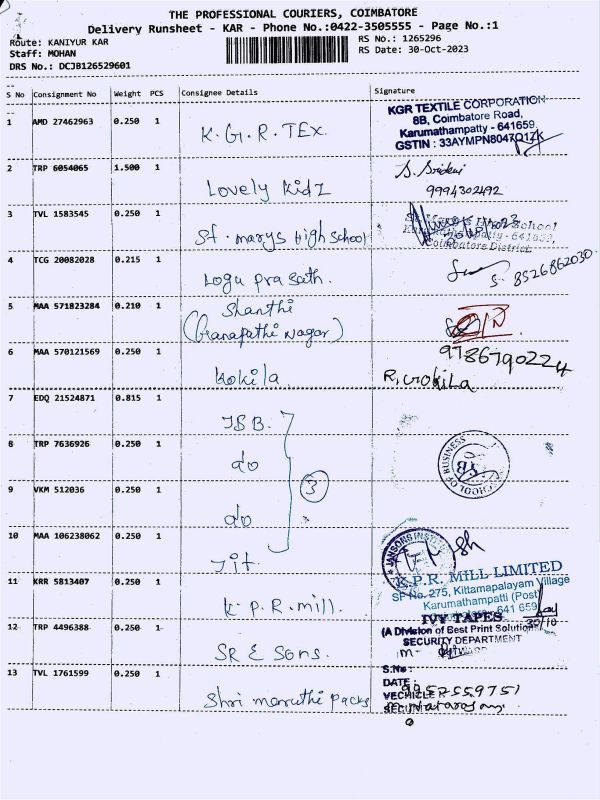 THE PROFESSIONAL COURIERS, COIMBATORE
Delivery Runsheet - KAR - Phone No.:0422-3505555 - Page No.:1
Route: KANIYUR KAR
RS No.: 1265296
Staff: MOHAN
RS Date: 30-Oct-2023
DRS No.: DCJB126529601
S No Consignment No Weight PCS Consignee Details Signature
1 AMD 27462963 0.250 1 K.G.R.TEX.
KGR TEXTILE CORPORATION
8B, Coimbatore Road,
Karumathampatty - 641659.
GSTIN : 33AYMPN8047Q1ZK
2 TRP 6054065 1.500 1 Lovely Kidz
S. Sridevi
9994302492
3 TVL 1583545 0.250 1 St. marys High School
School
641659,
Coimbatore District.
4 TCG 20082028 0.215 1 Logu prasath.
S. 8526862030
5 MAA 571823284 0.210 1 Shanthi
(Ganapathi Nagar)
6 MAA 570121569 0.250 1 kokila.
9786790224
R.
7 EDQ 21524871 0.815 1 JSB.
8 TRP 7636926 0.250 1 do
SCHOOL OF BUSINESS
JSB
9 VKM 512036 0.250 1 do
3
10 MAA 106238062 0.250 1 Jit.
JANSONS INSTIT
11 KRR 5813407 0.250 1 K.P.R.mill.
K.P.R. MILL LIMITED
SF No. 275, Kittamapalayam Village
Karumathampatti (Post)
641 659
30/10
12 TRP 4496388 0.250 1 SR E Sons.
IVY TAPES
(A Division of Best Print Solution
SECURITY DEPARTMENT
13 TVL 1761599 0.250 1 Shri maruthi packs
S.No :
DATE :
9952559751
VECHICLE